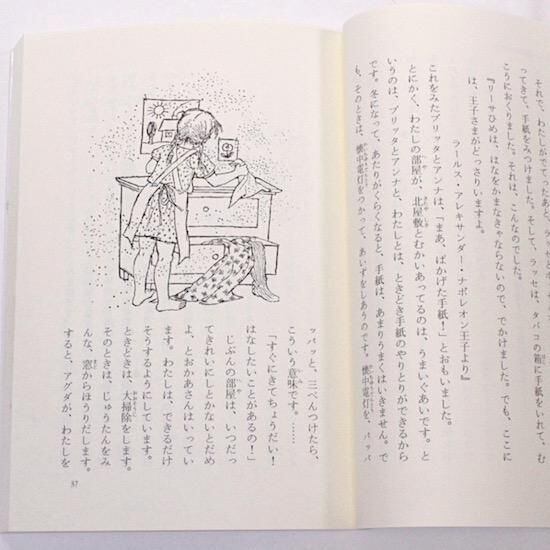 それで、わたしがでてったあと、ラッセと
ってきて、手紙をみつけました。そして、ラッセは、タバコの箱に手紙をいれて、む
こうにおくりました。それは、こんなのでした。
『リーサひめは、はなをかまなきゃならないので、でかけました。でも、ここに
は、王子さまがどっさりいますよ。
ラールス・アレキサンダー・ナポレオン王子より』
これをみたブリッタとアンナは、「まあ、ばかげた手紙！」とおもいました。
とにかく、わたしの部屋が、北屋敷とむかいあってるのは、うまいぐあいです。と
いうのは、ブリッタとアンナと、わたしとは、ときどき手紙のやりとりができるから
です。冬になって、あたりがくらくなると、手紙は、あまりうまくはいきません。で
も、そのときは、懐中電灯をつかって、あいずをしあうのです。懐中電灯を、パッパ
ッパッと、三べんつけたら、
こういう意味です。……
「すぐにきてちょうだい！
はなしたいことがあるの！」
じぶんの部屋は、いつだっ
てきれいにしとかないとだめ
よ、とおかあさんはいってい
ます。わたしは、できるだけ
そうするようにしています。
ときどきは、大掃除をします。
そのときは、じゅうたんをみ
んな、窓からほうりだします。
すると、アグダが、わたしを
37